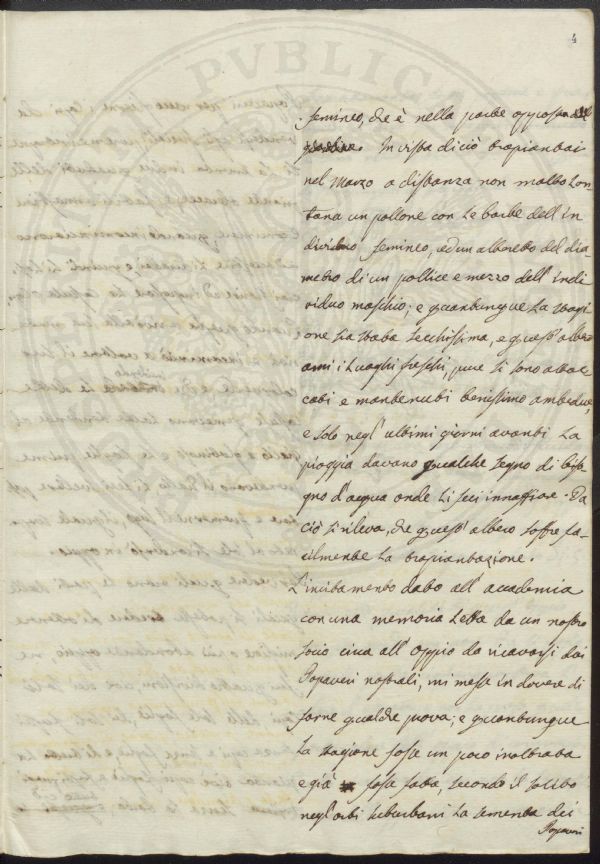 4
femineo, che è nella parte opposta del
giardino. In vista di ciò trapiantai
nel Marzo a distanza non molto lon-
tana un pollone con le barbe dell'in
dividuo femineo, ed un alberetto del dia-
metro di un pollice e mezzo dell'indi
viduo maschio; e quantunque la stagi
one sia stata secchissima, e quest'albero
ami i luoghi freschi, pure si sono attac
cati e mantenuti benissimo ambedue,
e solo negl'ultimi giorni avanti la
pioggia davano qualche segno di biso
gno d'acqua onde li feci innaffiare. Da
ciò si rileva, che quest'albero soffre fa-
cilmente la trapiantazione.
L'incitamento dato all'accademia
con una memoria letta da un nostro
socio circa all'oppio da ricavarsi dai
Papaveri nostrali, mi messe in dovere di
farne qualche prova; e quantunque
la stagione fosse un poco inoltrata
e già fosse fatta, secondo il solito
negl'orti suburbani la sementa dei
Papaveri